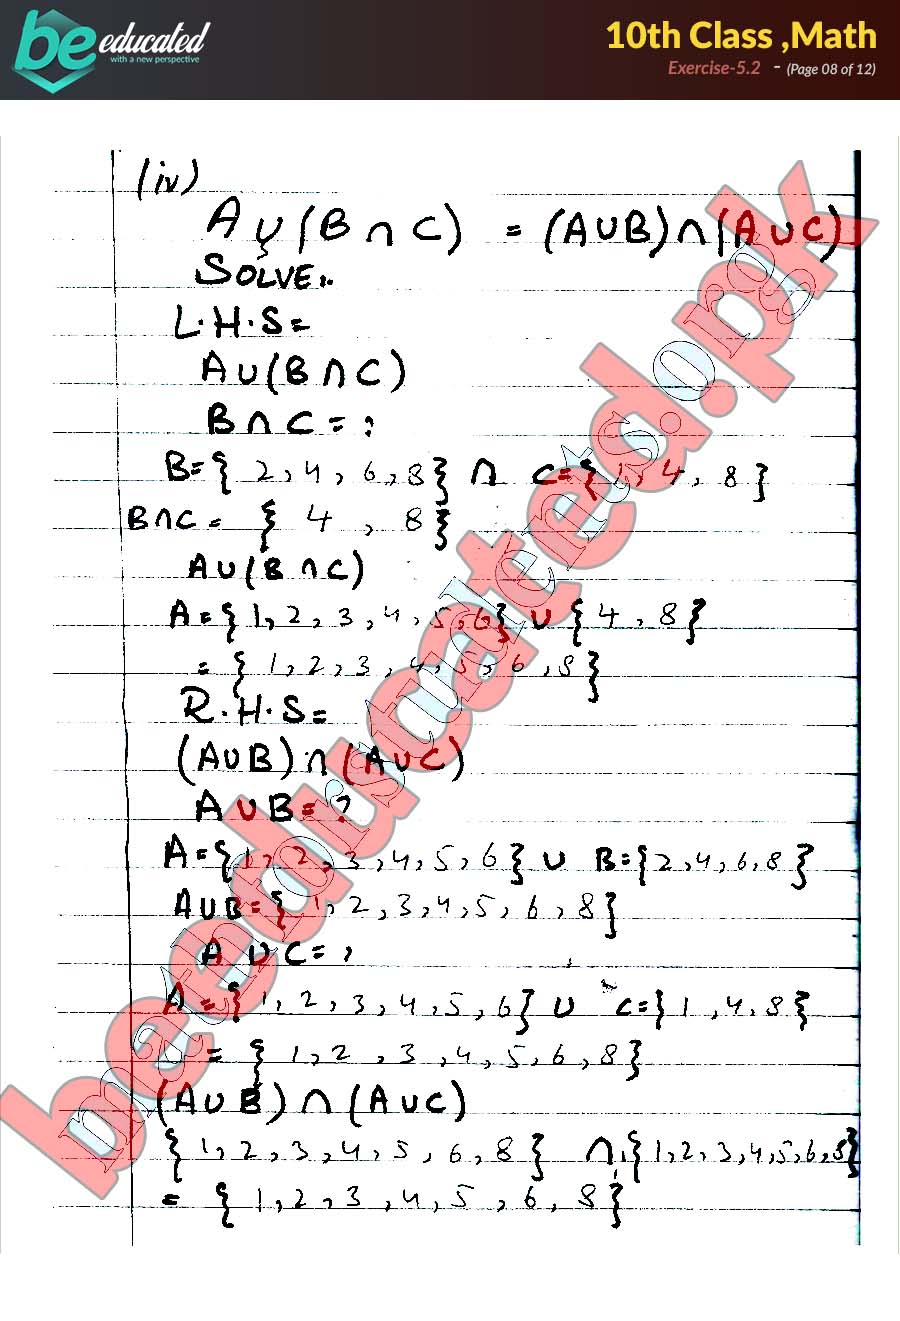 be educated
with a new perspective
10th Class ,Math
Exercise-5.2 - (Page 08 of 12)
(iv)
A ∪ (B ∩ C) = (A∪B)∩(A∪C)
SOLVE:.
L.H.S=
A∪(B∩C)
B∩C=?
B={2,4,6,8} ∩ C={1,4,8}
B∩C= {4,8}
A∪(B∩C)
A={1,2,3,4,5,6} ∪ {4,8}
= {1,2,3,4,5,6,8}
R.H.S=
(A∪B)∩(A∪C)
A∪B=?
A={1,2,3,4,5,6} ∪ B={2,4,6,8}
A∪B={1,2,3,4,5,6,8}
A∪C=?
A={1,2,3,4,5,6} ∪ C={1,4,8}
= {1,2,3,4,5,6,8}
(A∪B)∩(A∪C)
{1,2,3,4,5,6,8} ∩ {1,2,3,4,5,6,8}
= {1,2,3,4,5,6,8}
beeducated.pk